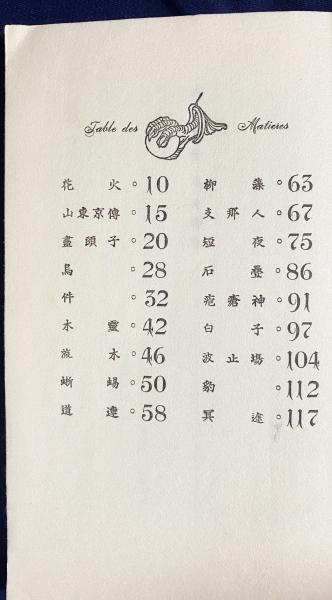 Table des Matieres
花火。10
山東京傳。15
盡頭子。20
烏。28
件。32
木靈。42
流木。46
蜥蜴。50
道連。58
柳藻。63
支那人。67
短夜。75
石疊。86
疱瘡神。91
白子。97
波止場。104
豹。112
冥途。117